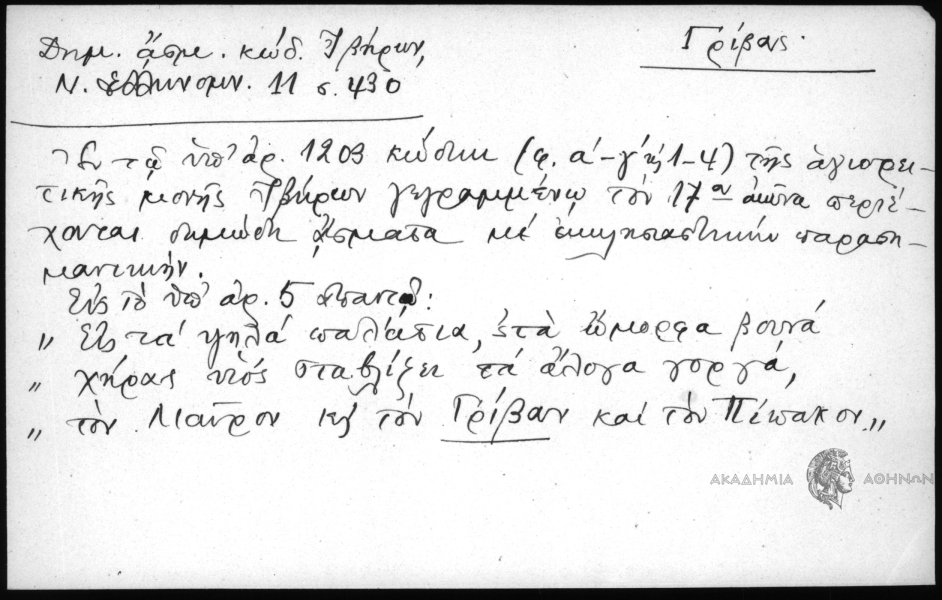 Δημ. ἄσμ. κώδ. Ἰβήρων,
Γρίβας.
Ν. Ἑλληνομν. 11 σ. 430
Ἐν τῷ ὑπ' ἀρ. 1203 κώδικι (φ. α'-γ' κ' 1-4) τῆς ἁγιορει-
τικῆς μονῆς Ἰβήρων γεγραμμένῳ τὸν 17ον αἰῶνα περιέ-
χονται δημώδη ᾄσματα μὲ ἐκκλησιαστικὴν παραση-
μαντικήν.
Εἰς τὸ ὑπ' ἀρ. 5 ἀπαντᾷ:
„ Εἰς τὰ ψηλὰ παλάτια, 'ς τὰ ὤμορφα βουνά
„ χήρας υἱός σταβλίζει τὰ ἄλογα γοργά,
„ τὸν Μαῦρον κὴ τὸν Γρίβαν καὶ τὸν Πέπακον „
ΑΚΑΔΗΜΙΑ ΑΘΗΝΩΝ